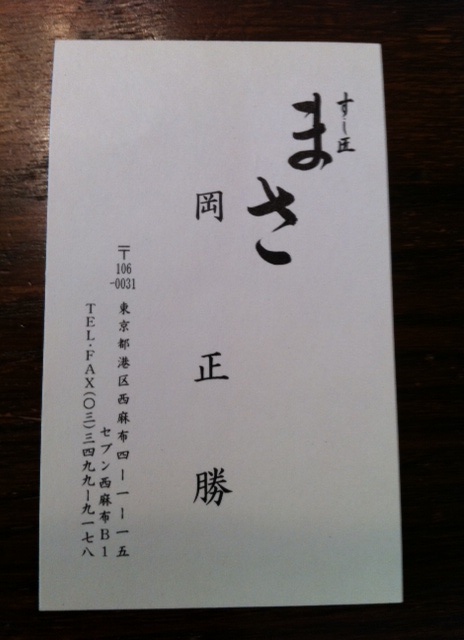 すし匠
まさ
岡正勝
〒106-0031 東京都港区西麻布四ー一ー一五
セブン西麻布B1
TEL・FAX(〇三)三四九九ー九一七八